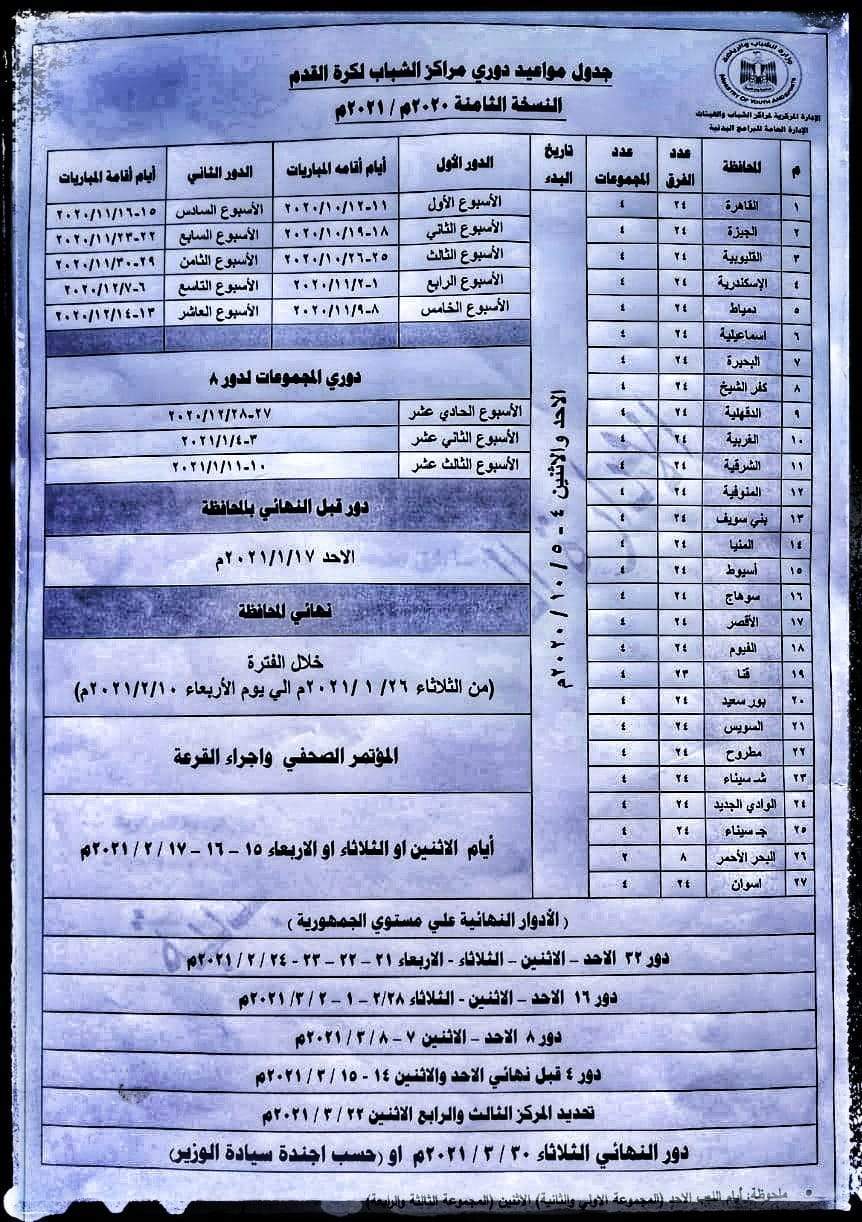 وزارة الشباب والرياضة
MINISTRY OF YOUTH AND SPORTS
الإدارة المركزية لمراكز الشباب والهيئات
الإدارة العامة للبرامج البدنية
جدول مواعيد دوري مراكز الشباب لكرة القدم
النسخة الثامنة ٢٠٢٠م / ٢٠٢١م
م المحافظة عدد الفرق عدد المجموعات تاريخ البدء الدور الأول أيام أقامه المباريات الدور الثاني أيام أقامة المباريات
١ القاهرة ٢٤ ٤ الأسبوع الأول ١١-٢٠٢٠/١٠/١٢ الأسبوع السادس ١٥-٢٠٢٠/١١/١٦
٢ الجيزة ٢٤ ٤ الأسبوع الثاني ١٨-٢٠٢٠/١٠/١٩ الأسبوع السابع ٢٢-٢٠٢٠/١١/٢٣
٣ القليوبية ٢٤ ٤ الأسبوع الثالث ٢٥-٢٠٢٠/١٠/٢٦ الأسبوع الثامن ٢٩-٢٠٢٠/١١/٣٠
٤ الإسكندرية ٢٤ ٤ الأسبوع الرابع ١-٢٠٢٠/١١/٢ الأسبوع التاسع ٦-٢٠٢٠/١٢/٧
٥ دمياط ٢٤ ٤ الأسبوع الخامس ٨-٢٠٢٠/١١/٩ الأسبوع العاشر ١٣-٢٠٢٠/١٢/١٤
٦ اسماعيلية ٢٤ ٤
٧ البحيرة ٢٤ ٤
٨ كفر الشيخ ٢٤ ٤
٩ الدقهلية ٢٤ ٤
١٠ الغربية ٢٤ ٤
١١ الشرقية ٢٤ ٤
١٢ المنوفية ٢٤ ٤
١٣ بني سويف ٢٤ ٤
١٤ المنيا ٢٤ ٤
١٥ أسيوط ٢٤ ٤
١٦ سوهاج ٢٤ ٤
١٧ الأقصر ٢٤ ٤
١٨ الفيوم ٢٤ ٤
١٩ قنا ٢٣ ٤
٢٠ بور سعيد ٢٤ ٤
٢١ السويس ٢٤ ٤
٢٢ مطروح ٢٤ ٤
٢٣ شـ سيناء ٢٤ ٤
٢٤ الوادي الجديد ٢٤ ٤
٢٥ جـ سيناء ٢٤ ٤
٢٦ البحر الأحمر ٨ ٢
٢٧ اسوان ٢٤ ٤
الاحد والاثنين ٤ - ٥ / ١٠ / ٢٠٢٠م
دوري المجموعات لدور ٨
الأسبوع الحادي عشر ٢٧-٢٠٢٠/١٢/٢٨
الأسبوع الثاني عشر ٣-٢٠٢١/١/٤
الأسبوع الثالث عشر ١٠-٢٠٢١/١/١١
دور قبل النهائي بالمحافظة
الاحد ٢٠٢١/١/١٧م
نهائي المحافظة
خلال الفترة
(من الثلاثاء ٢٦/ ١ /٢٠٢١م الي يوم الأربعاء ٢٠٢١/٢/١٠م)
المؤتمر الصحفي واجراء القرعة
أيام الاثنين او الثلاثاء او الاربعاء ١٥ - ١٦ - ١٧ / ٢ / ٢٠٢١م
( الأدوار النهائية علي مستوي الجمهورية )
دور ٣٢ الاحد – الاثنين – الثلاثاء - الاربعاء ٢١ - ٢٢ - ٢٣ - ٢٤ / ٢ / ٢٠٢١م
دور ١٦ الاحد – الاثنين - الثلاثاء ٢/٢٨ - ١ - ٢ /٣/ ٢٠٢١م
دور ٨ الاحد – الاثنين ٧ - ٨ / ٣ / ٢٠٢١م
دور ٤ قبل نهائي الاحد والاثنين ١٤ - ١٥ / ٣ / ٢٠٢١م
تحديد المركز الثالث والرابع الاثنين ٢٢ / ٣ / ٢٠٢١م
دور النهائي الثلاثاء ٣٠ / ٣ / ٢٠٢١م او (حسب اجندة سيادة الوزير)
ملحوظة: أيام اللعب الاحد (المجموعة الاولي والثانية) الاثنين (المجموعة الثالثة والرابعة)